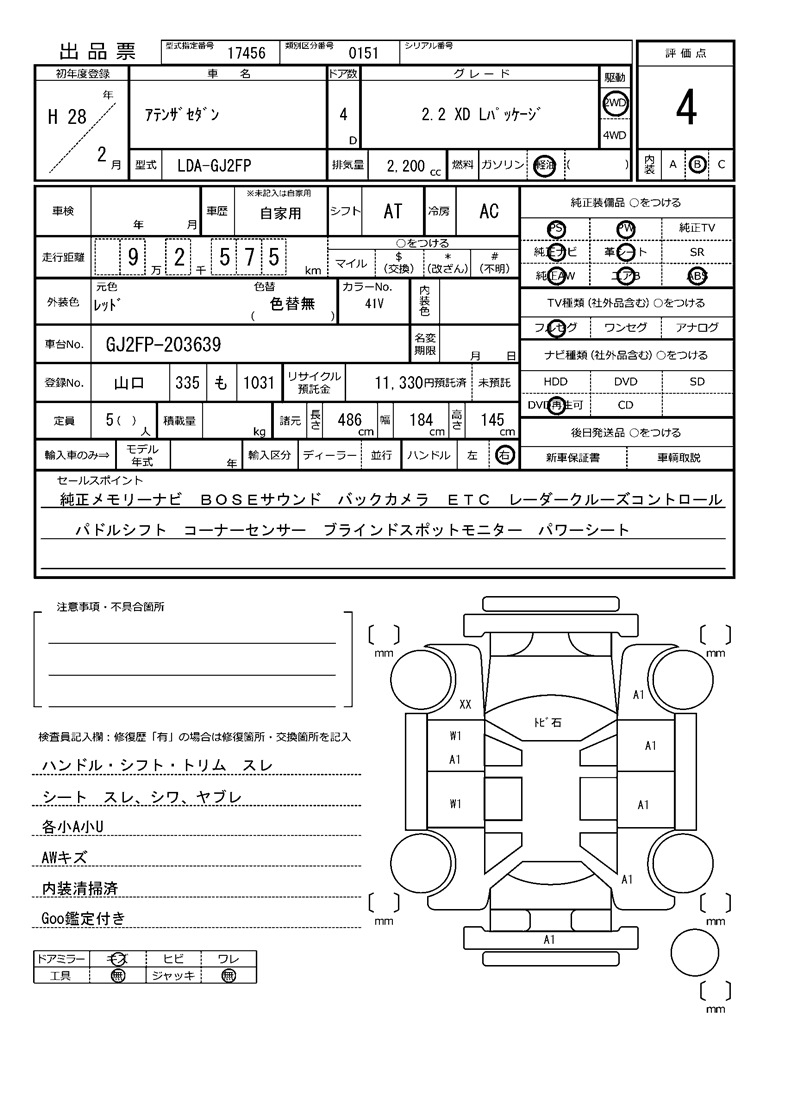 出品票
型式指定番号 17456 類別区分番号 0151 シリアル番号
初年度登録 車名 ドア数 グレード 駆動 評価点
H 28 年 2 月 ｱﾃﾝｻﾞｾﾀﾞﾝ 4 D 2.2 XD Lﾊﾟｯｹｰｼﾞ 2WD 4WD 4
型式 LDA-GJ2FP 排気量 2,200 cc 燃料 ガソリン 軽油 ( ) 内装 A B C
車検 年 月 車歴 ※未記入は自家用 自家用 シフト AT 冷房 AC
走行距離 9 万 2 千 5 7 5 km ○をつける マイル $(交換) *(改ざん) #(不明)
外装色 元色 ﾚｯﾄﾞ 色替 ( 色替無 ) カラーNo. 41V 内装色
車台No. GJ2FP-203639 名変期限 月 日
登録No. 山口 335 も 1031 リサイクル預託金 11,330円預託済 未預託
定員 5 ( ) 人 積載量 kg 諸元 長さ 486 cm 幅 184 cm 高さ 145 cm
輸入車のみ⇒ モデル年式 年 輸入区分 ディーラー 並行 ハンドル 左 右
純正装備品 ○をつける
PS PW 純正TV
純正ナビ 革シート SR
純正AW エアB ABS
TV種類(社外品含む) ○をつける
フルセグ ワンセグ アナログ
ナビ種類(社外品含む) ○をつける
HDD DVD SD
DVD再生可 CD
後日発送品 ○をつける
新車保証書 車輌取説
セールスポイント
純正メモリーナビ ＢＯＳＥサウンド バックカメラ ＥＴＣ レーダークルーズコントロール
パドルシフト コーナーセンサー ブラインドスポットモニター パワーシート
注意事項・不具合箇所
検査員記入欄：修復歴「有」の場合は修復箇所・交換箇所を記入
ハンドル・シフト・トリム スレ
シート スレ、シワ、ヤブレ
各小A小U
AWキズ
内装清掃済
Goo鑑定付き
ドアミラー キズ ヒビ ワレ
工具 無 ジャッキ 無
mm mm
XX A1
ﾄﾋﾞ石
W1 A1
A1
W1 A1
A1
mm mm
A1
mm